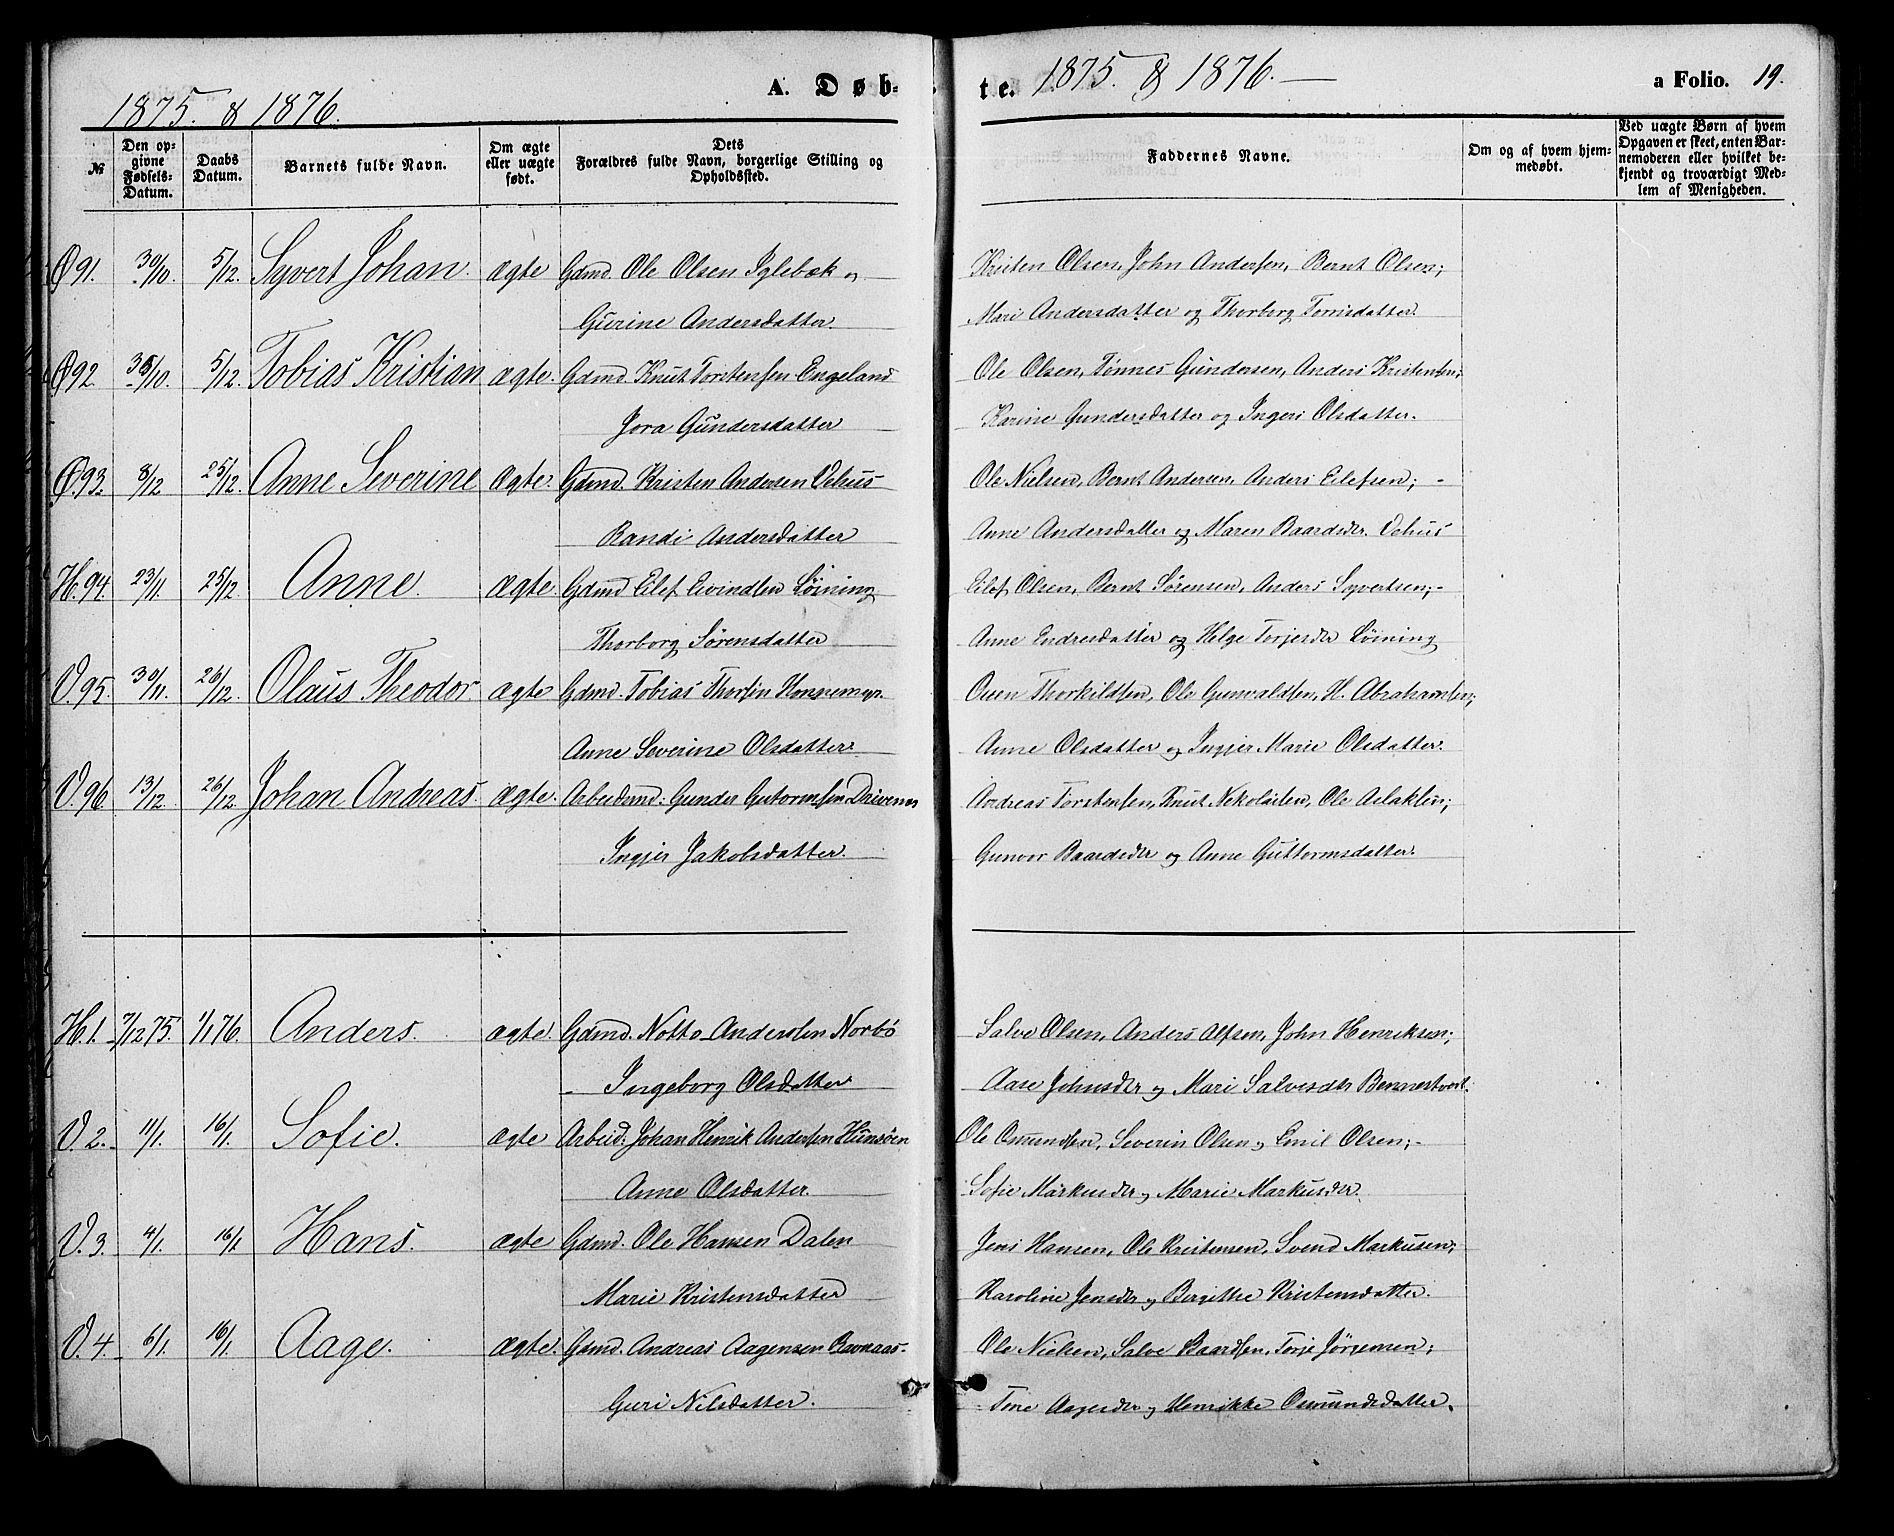 1875. & 1876.
A. Døb-
te. 1875. & 1876. —
a Folio. 19.
№
Den op-
givne
Fødsels-
Datum.
Daabs
Datum.
Barnets fulde Navn.
Om ægte
eller uægte
født.
Dets
Forældres fulde Navn, borgerlige Stilling og
Opholdssted.
Faddernes Navne.
Om og af hvem hjem-
medøbt.
Ved uægte Børn af hvem
Opgaven er skeet, enten Bar-
nemoderen eller hvilket be-
kjendt og troværdigt Med-
lem af Menigheden.
Ø 91. 30/10. 5/12. Syvert Johan. ægte Gdmd. Ole Olsen Iglebæk og Kristen Olsen, John Andersen, Bernt Olsen;
Gurine Andersdatter. Mari Andersdatter og Thorborg Terrisdatter.
Ø 92 /10. 5/12. Tobias Kristian ægte. Gdmd. Knut Torstensen Engeland Ole Olsen, Tønnes Gundersen, Anders Kristensen;
Jora Gundersdatter Karine Gundersdatter og Ingeri Olsdatter.
Ø. 93. 8/12 25/12. Anne Severine Ægte. Gdmd. Kristen Andersen Vehus Ole Nielsen, Bernt Andersen, Anders Eilefsen; -
Randi Andersdatter Anne Andersdatter og Maren Baardsdr. Vehus
H. 94. 23/11. 25/12. Anne. Ægte. Gdmd Eilef Eivindsen Løining Eilef Olsen, Bernt Sørensen, Anders Syvertsen; -
Thorborg Sørensdatter Anne Endresdatter og Helge Torjesdr Løining
V. 95. 30/11. 26/12. Olaus Theodor. ægte Gdmd. Tobias Thorsen Honnemyr. Ouen Thorkildsen, Ole Gunvaldsen, H. Abrahamsen;
Anne Severine Olsdatter. Anne Olsdatter og Ingjer Marie Olsdatter.
V. 96. 13/12. 26/12. Johan Andreas. ægte. Arbeidsmd: Gunder Gutormsen Drivenes Andreas Torstensen, Knut Nikolaisen, Ole Aslaksen;
Ingjer Jakobsdatter. Gunvor Baardsdr og Anne Guttormsdatter.
H. 1. 7/12 75. 1/1 76. Anders. ægte. Gdmd. Notto Andersen Norbø Salve Olsen, Anders Alfsen, John Henriksen;
Ingeborg Olsdatter. Aase Johnsdr og Mari Salvesdtr
V. 2. 11/1. 16/1. Sofie. ægte Arbeid: Johan Henrik Andersen Hunsøen Ole Osmundsen, Severin Olsen og Emil Olsen; -
Anne Olsdatter. Sofie Markusdr og Marie Markusdr.
V. 3. 4/1. 16/1 Hans. ægte Gdmd. Ole Hansen Dalen Jens Hansen, Ole Kristensen, Svend Markusen;
Marie Kristensdatter Karoline Jensdr og Bergitte Kristensdatter.
V. 4. 6/1. 16/1. Aage. ægte. Gdmd. Andreas Aagensen Ravnaas Ole Nielsen, Salve Baardsen, Torje Jørgensen;
Guri Nilsdatter. Tone Aagesdr og Henrikke Osmundsdatter.